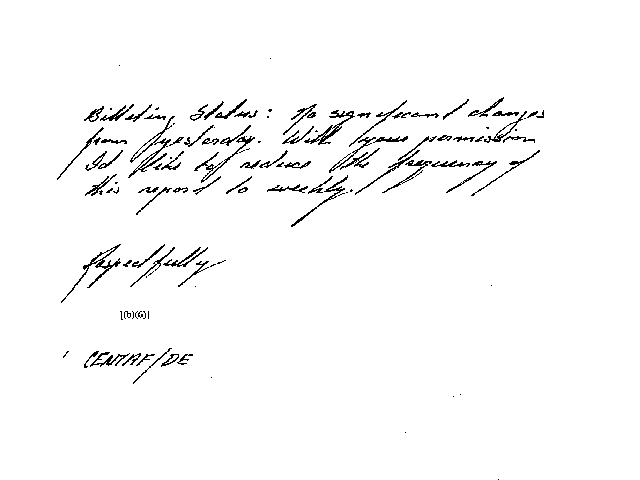 Billeting Status: No significant changes
from yesterday. With your permission
I'd like to reduce the frequency of
this report to weekly.
Respectfully
(b)(6)
CENTAF/DE